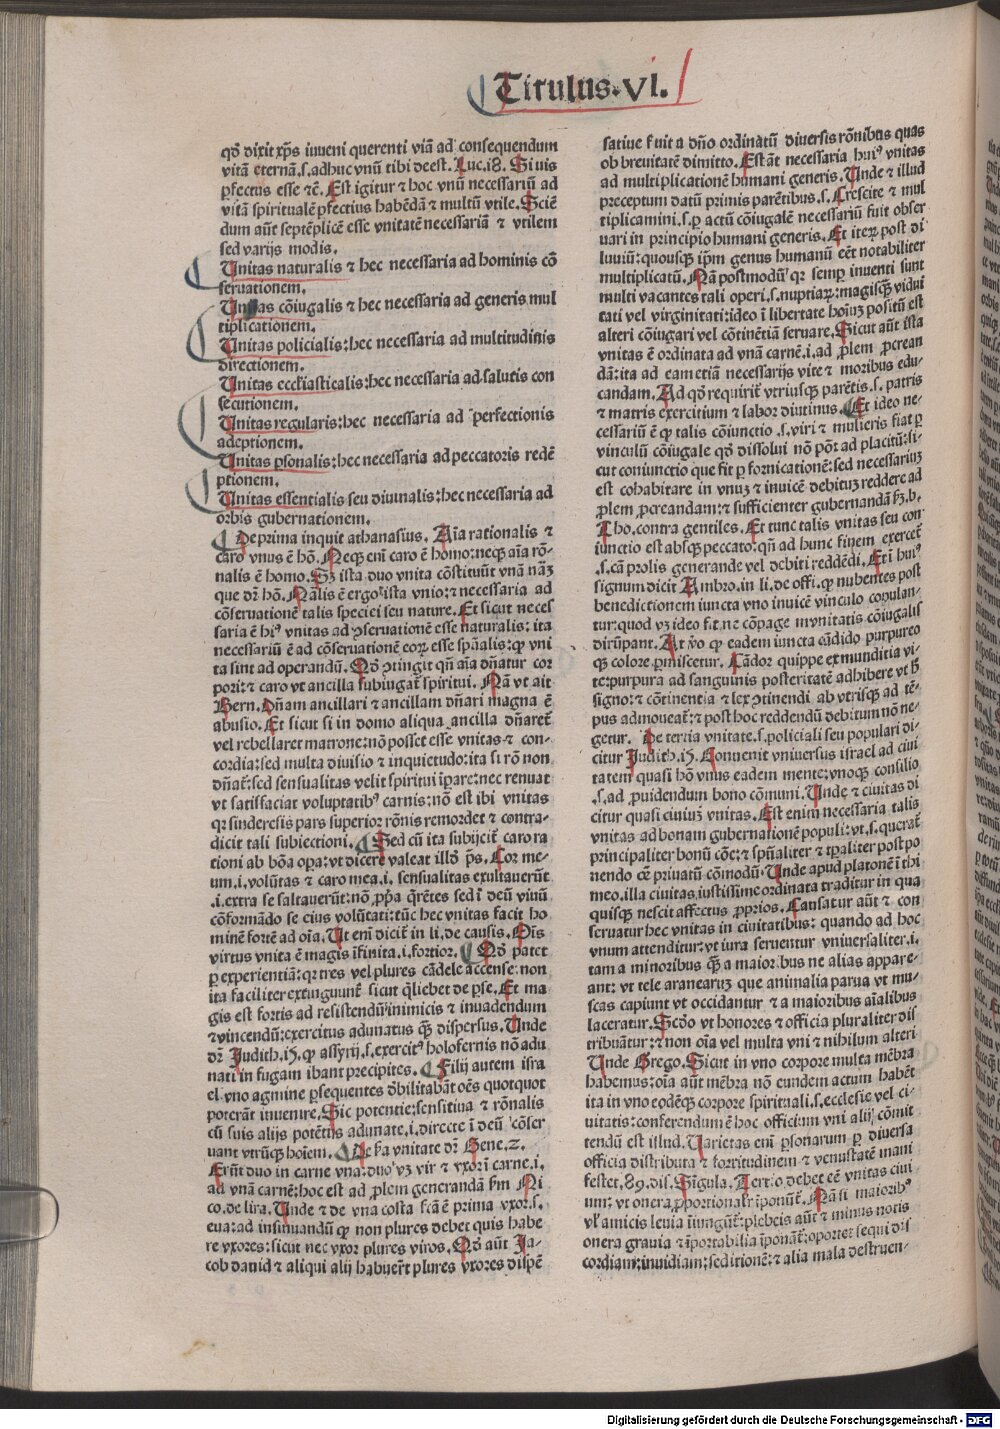 Titulus.VI.
qď dixit xp̄s iuueni querenti viā ad consequendum
vitā eternā.s.adhuc vnū tibi deest. Luc.i8. Si vis
ꝑfectus esse ⁊c̄. Est igitur ⁊ hoc vnū necessariū ad
vitā spiritualē ꝑfectius habēdā ⁊ multū vtile. Sciē
dum aūt septēplicē esse vnitatē necessariā ⁊ vtilem
sed varijs modis.
Unitas naturalis ⁊ hec necessaria ad hominis cō
seruationem.
Unitas cōiugalis ⁊ hec necessaria ad generis mul
tiplicationem.
Unitas policialis:hec necessaria ad multitudinis
directionem.
Unitas eccl̄iasticalis:hec necessaria ad salutis con
secutionem.
Unitas regularis:hec necessaria ad perfectionis
adeptionem.
Unitas ꝑsonalis:hec necessaria ad peccatoris redē
ptionem.
Unitas essentialis seu diuinalis:hec necessaria ad
orbis gubernationem.
De prima inquit athanasius. Aīa rationalis ⁊
caro vnus ē hō. Neqꝫ enī caro ē homo:neqꝫ aīa rō-
nalis ē homo. Sꝫ ista duo vnita cōstituūt vnā nāꝫ
que dr̄ hō. Nālis ē ergo ista vnio:⁊ necessaria ad
cōseruationē talis speciei seu nature. Et sicut neces
saria ē hiꝰ vnitas ad ꝯseruationē esse naturalis: ita
necessariū ē ad cōseruationē eoꝝ esse spūalis:qꝙ vni
ta sint ad operandū. Qď ꝯtingit qn̄ aīa dn̄atur cor
pori:⁊ caro vt ancilla subiugat̄ spiritui. Nā vt ait
Bern. Dn̄am ancillari ⁊ ancillam dn̄ari magna ē
abusio. Et sicut si in domo aliqua ancilla dn̄aret̄
vel rebellaret matrone:nō posset esse vnitas ⁊ con-
cordia:sed multa diuisio ⁊ inquietudo:ita si rō non
dn̄at̄:sed sensualitas velit spiritui īpare:nec renuat
vt satisfaciat voluptatibꝰ carnis:nō est ibi vnitas
qꝛ sinderesis pars superior rōnis remordet ⁊ contra-
dicit tali subiectioni. Sed cū ita subijcit̄ caro ra
tioni ab bōa oꝑa:vt dicere valeat illď ps̄. Cor me-
um.i.volūtas ⁊ caro mea.i. sensualitas exultauerūt
.i.extra se saltauerūt:nō ꝓpa q̄rētes sed ī deū viuū
cōformādo se eius volūtati:tūc hec vnitas facit ho
minē fortē ad oīa. Ut enī dicit̄ in li. de causis. Oīs
virtus vnita ē magis īfinita.i.fortior. Qď patet
ꝑ experientiā:qꝛ tres vel plures cādele accense:non
ita faciliter extinguunt̄ sicut q̄libet de ꝑse. Et ma
gis est fortis ad resistendū inimicis ⁊ inuadendum
⁊ vincendū:exercitus adunatus qꝫ̄ dispersus. Unde
dr̄ Judith.i5. qꝙ assyrij.s.exercitꝰ holofernis nō adu
nati in fugam ibant precipites. Filij autem isra
el vno agmine ꝑsequentes dēbilitabāt oēs quotquot
poterāt inuenire. Sic potentie:sensitiua ⁊ rōnalis
cū suis alijs potētijs adunate.i.directe ī deū cōser
uant vtrūqꝫ hoīem. De scd̄a vnitate dr̄ Gene.2.
Erūt duo in carne vna:duo vꝫ vir ⁊ vxor ī carne.i.
ad vnā carnē:hoc est ad ꝓlem generandā scd̄m Ni
co. de lira. Unde ⁊ de vna costa fc̄a ē prima vxor.s.
eua:ad insinuandū qꝙ non plures debet quis habe
re vxores:sicut nec vxor plures viros. Qď aūt Ja-
cob dauid ⁊ aliqui alij habuer̄t plures vxores dispē
satiue fuit a dn̄o ordinatū diuersis rōnibus quas
ob breuitatē dimitto. Est āt necessaria huiꝰ vnitas
ad multiplicationē humani generis. Unde ⁊ illud
preceptum datū primis parētibus.s. Crescite ⁊ mul
tiplicamini.s.ꝑ actū cōiugalē necessariū fuit obser
uari in principio humani generis. Et iteꝝ post di
luuiū:quousqꝫ ip̄m genus humanū eēt notabiliter
multiplicatū. Nā postmodū qꝛ semꝑ inuenti sunt
multi vacantes tali operi.s.nuptiaꝝ:magisqꝫ vidui
tati vel virginitati:ideo ī libertate hoīuꝫ positū est
alteri cōiugari vel cōtinētiā seruare. Sicut aūt ista
vnitas ē ordinata ad vnā carnē.i.ad ꝓlem ꝓcrean
dā:ita ad eam etiā necessarijs vite ⁊ moribus edu-
candam. Ad qď requirit̄ vtriusqꝫ parētis.s. patris
⁊ matris exercitium ⁊ labor diutinus. Et ideo ne-
cessariū ē qꝙ talis cōiunctio .s.viri ⁊ mulieris fiat ꝑ
vinculū cōiugale qď dissolui nō pōt ad placitū:si-
cut coniunctio que fit ꝑ fornicationē:sed necessariuꝫ
est cohabitare in vnuꝫ ⁊ inuicē debituꝫ reddere ad
ꝓlem ꝓcreandam:⁊ sufficienter gubernandā scd̄ꝫ.b.
Tho.contra gentiles. Et tunc talis vnitas seu con
iunctio est absqꝫ peccato:qn̄ ad hunc finem exercet̄
.s.cā prolis generande vel debiti reddēdi. Et ī huiꝰ
signum dicit Ambro.in li.de offi.qꝙ nubentes post
benedictionem iuncta vno inuicē vinculo copulan-
tur:quod vꝫ ideo fit ne cōpage vnitatis cōiugalis
dirūpant. At v̄o qꝙ eadem iuncta cādido purpureo
qꝫ colore ꝑmiscetur. Cādor quippe ex munditia vi-
te:purpura ad sanguinis posteritatē adhibere vt p̄
signo:⁊ cōtinentia ⁊ lex ꝯtinendi ab vtrisqꝫ ad tē-
pus admoueat̄:⁊ post hoc reddendū debitum nō ne-
getur. De tertia vnitate.s.policiali seu populari di-
citur Judith.i5. Conuenit vniuersus israel ad ciui
tatem quasi hō vnus eadem mente:vnoqꝫ consilio
.s.ad ꝓuidendum bono cōmuni. Unde ⁊ ciuitas di
citur quasi ciuiuꝫ vnitas. Est enim necessaria talis
vnitas ad bonam gubernationē populi:vt.s.querat̄
principaliter bonū cōe:⁊ spūaliter ⁊ tp̄aliter postpo
nendo oē priuatū cōmodū. Unde apud platonē ī thi
meo.illa ciuitas iustissime ordinata traditur in qua
quisqꝫ nescit affectus ꝓprios. Causatur aūt ⁊ con
seruatur hec vnitas in ciuitatibus: quando ad hoc
vnum attenditur:vt iura seruentur vniuersaliter.i.
tam a minoribus qꝫ̄ a maioribus ne alias appare-
ant: vt tele aranearuꝫ que animalia parua vt mu-
scas capiunt vt occidantur ⁊ a maioribus aīalibus
laceratur. Scd̄o vt honores ⁊ officia pluraliter dis
tribuātur:⁊ non oīa vel multa vni ⁊ nihilum alteri
Unde Grego. Sicut in vno corpore multa mēbra
habemus:oīa aūt mēbra nō eundem actum habēt
ita in vno eodēqꝫ corpore spirituali.s.ecclesie vel ci-
uitatis:conferendum ē hoc officium vni alij cōmit
tendū est illud. Uarietas enī ꝑsonarum ꝑ diuersa
officia distributa ⁊ fortitudinem ⁊ venustatē mani
festet.89.dis. Singula. Tertio debet eē vnitas ciui
um:vt onera ꝓportionalr̄ īponūt̄. Nā si maioribꝰ
vl̓ amicis leuia iniungūt̄:plebeis aūt ⁊ minus notis
onera grauia ⁊ īportabilia īponāt̄:oportet sequi dis
cordiam:inuidiam:seditionē:⁊ alia mala destruen-
Digitalisierung gefördert durch die Deutsche Forschungsgemeinschaft - DFG